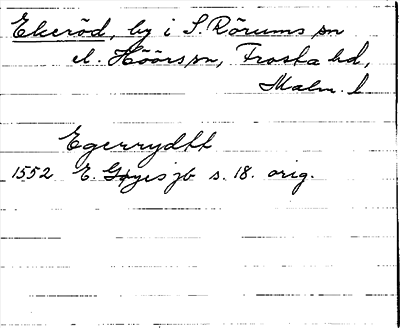 Ekeröd, by i S. Rörums sn
el. Höörs sn, Frosta hd,
Malm. l
Egerrydtt
1552 E. Gøyes jb s. 18. orig.